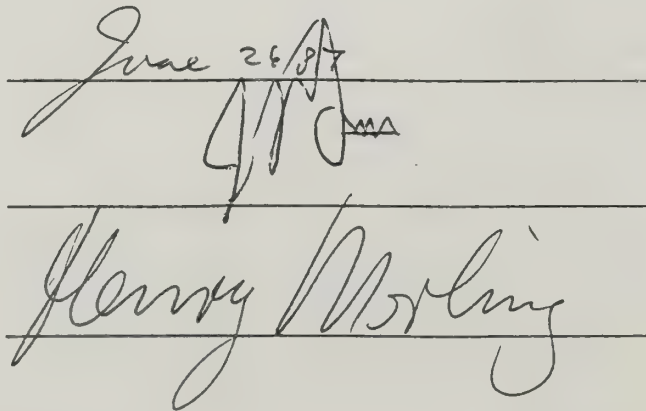 June 26/87
Henry Morling